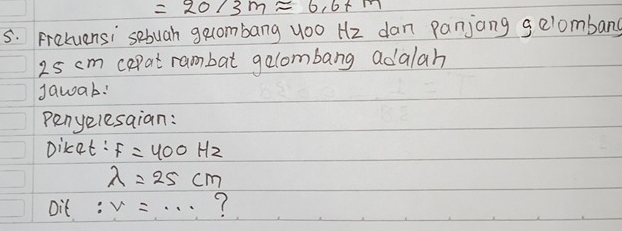 = 20/3 m ≈ 6,67 m
5. Frekuensi sebuah gelombang 400 Hz dan panjang gelombang
25 cm cepat rambat gelombang adalah
Jawab:
Penyelesaian:
Diket : F = 400 Hz
λ = 25 cm
Dit : v = ... ?